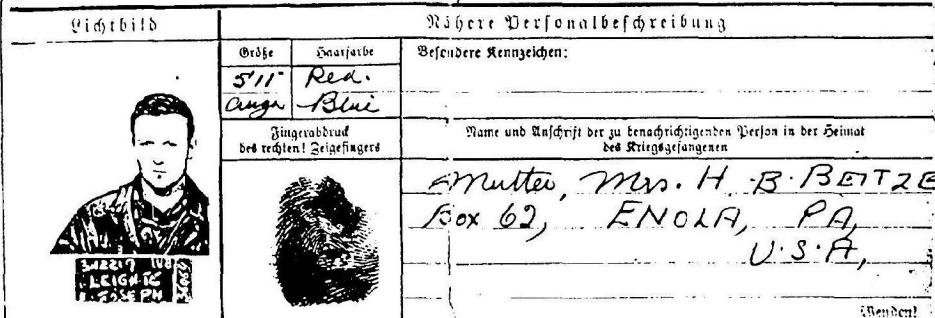 Lichtbild
Nähere Personalbeschreibung
Größe
Haarfarbe
Besondere Kennzeichen:
5'11" Red.
Augn Blue
Fingerabdruck
des rechten! Zeigefingers
Name und Anschrift der zu benachrichtigenden Person in der Heimat
des Kriegsgefangenen
Mutter, Mrs. H. B. BEITZE
Box 62, ENOLA, PA,
U.S.A,
JOSEPH
Wenden!